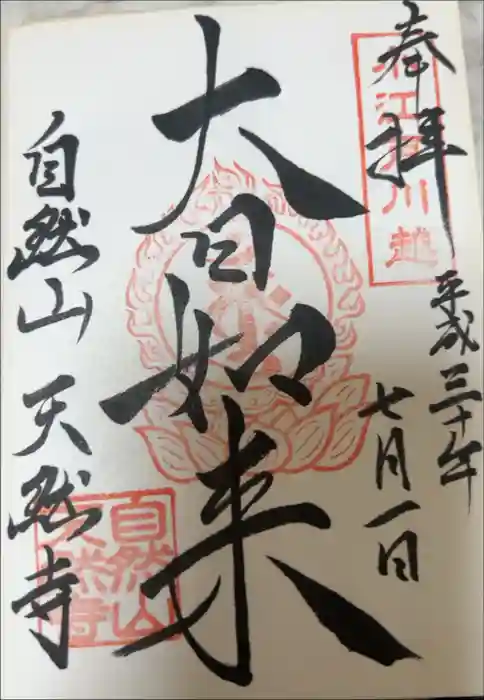 奉拝
平成三十年
七月一日
大日如来
自然山 天然寺
小江戸川越
自然山
天然寺